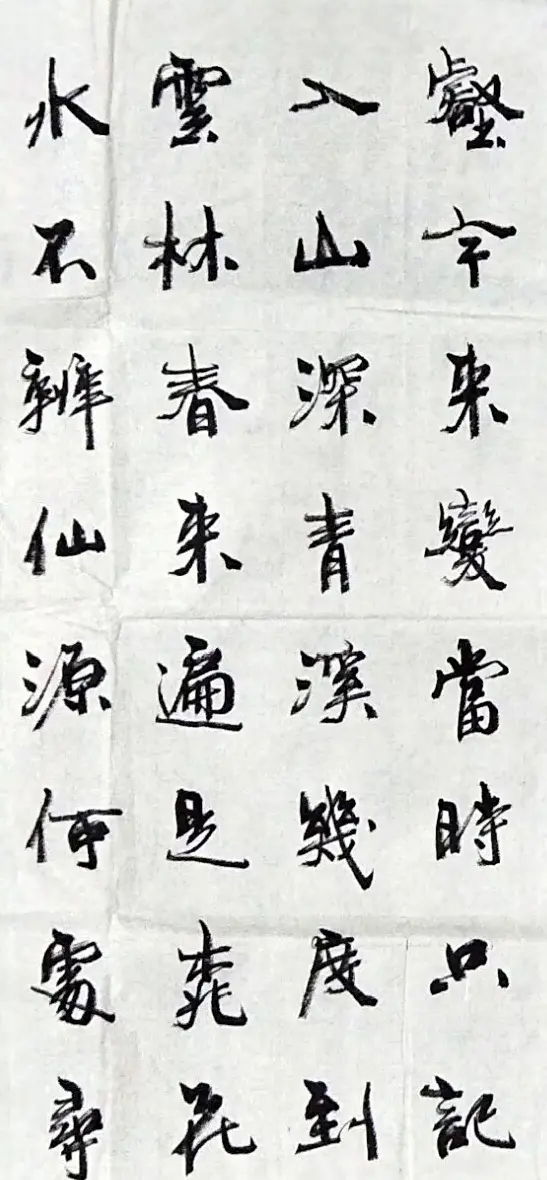 壑今来變當時只記
入山深青溪幾度到
雲林春来遍是桃花
水不辨仙源何處尋